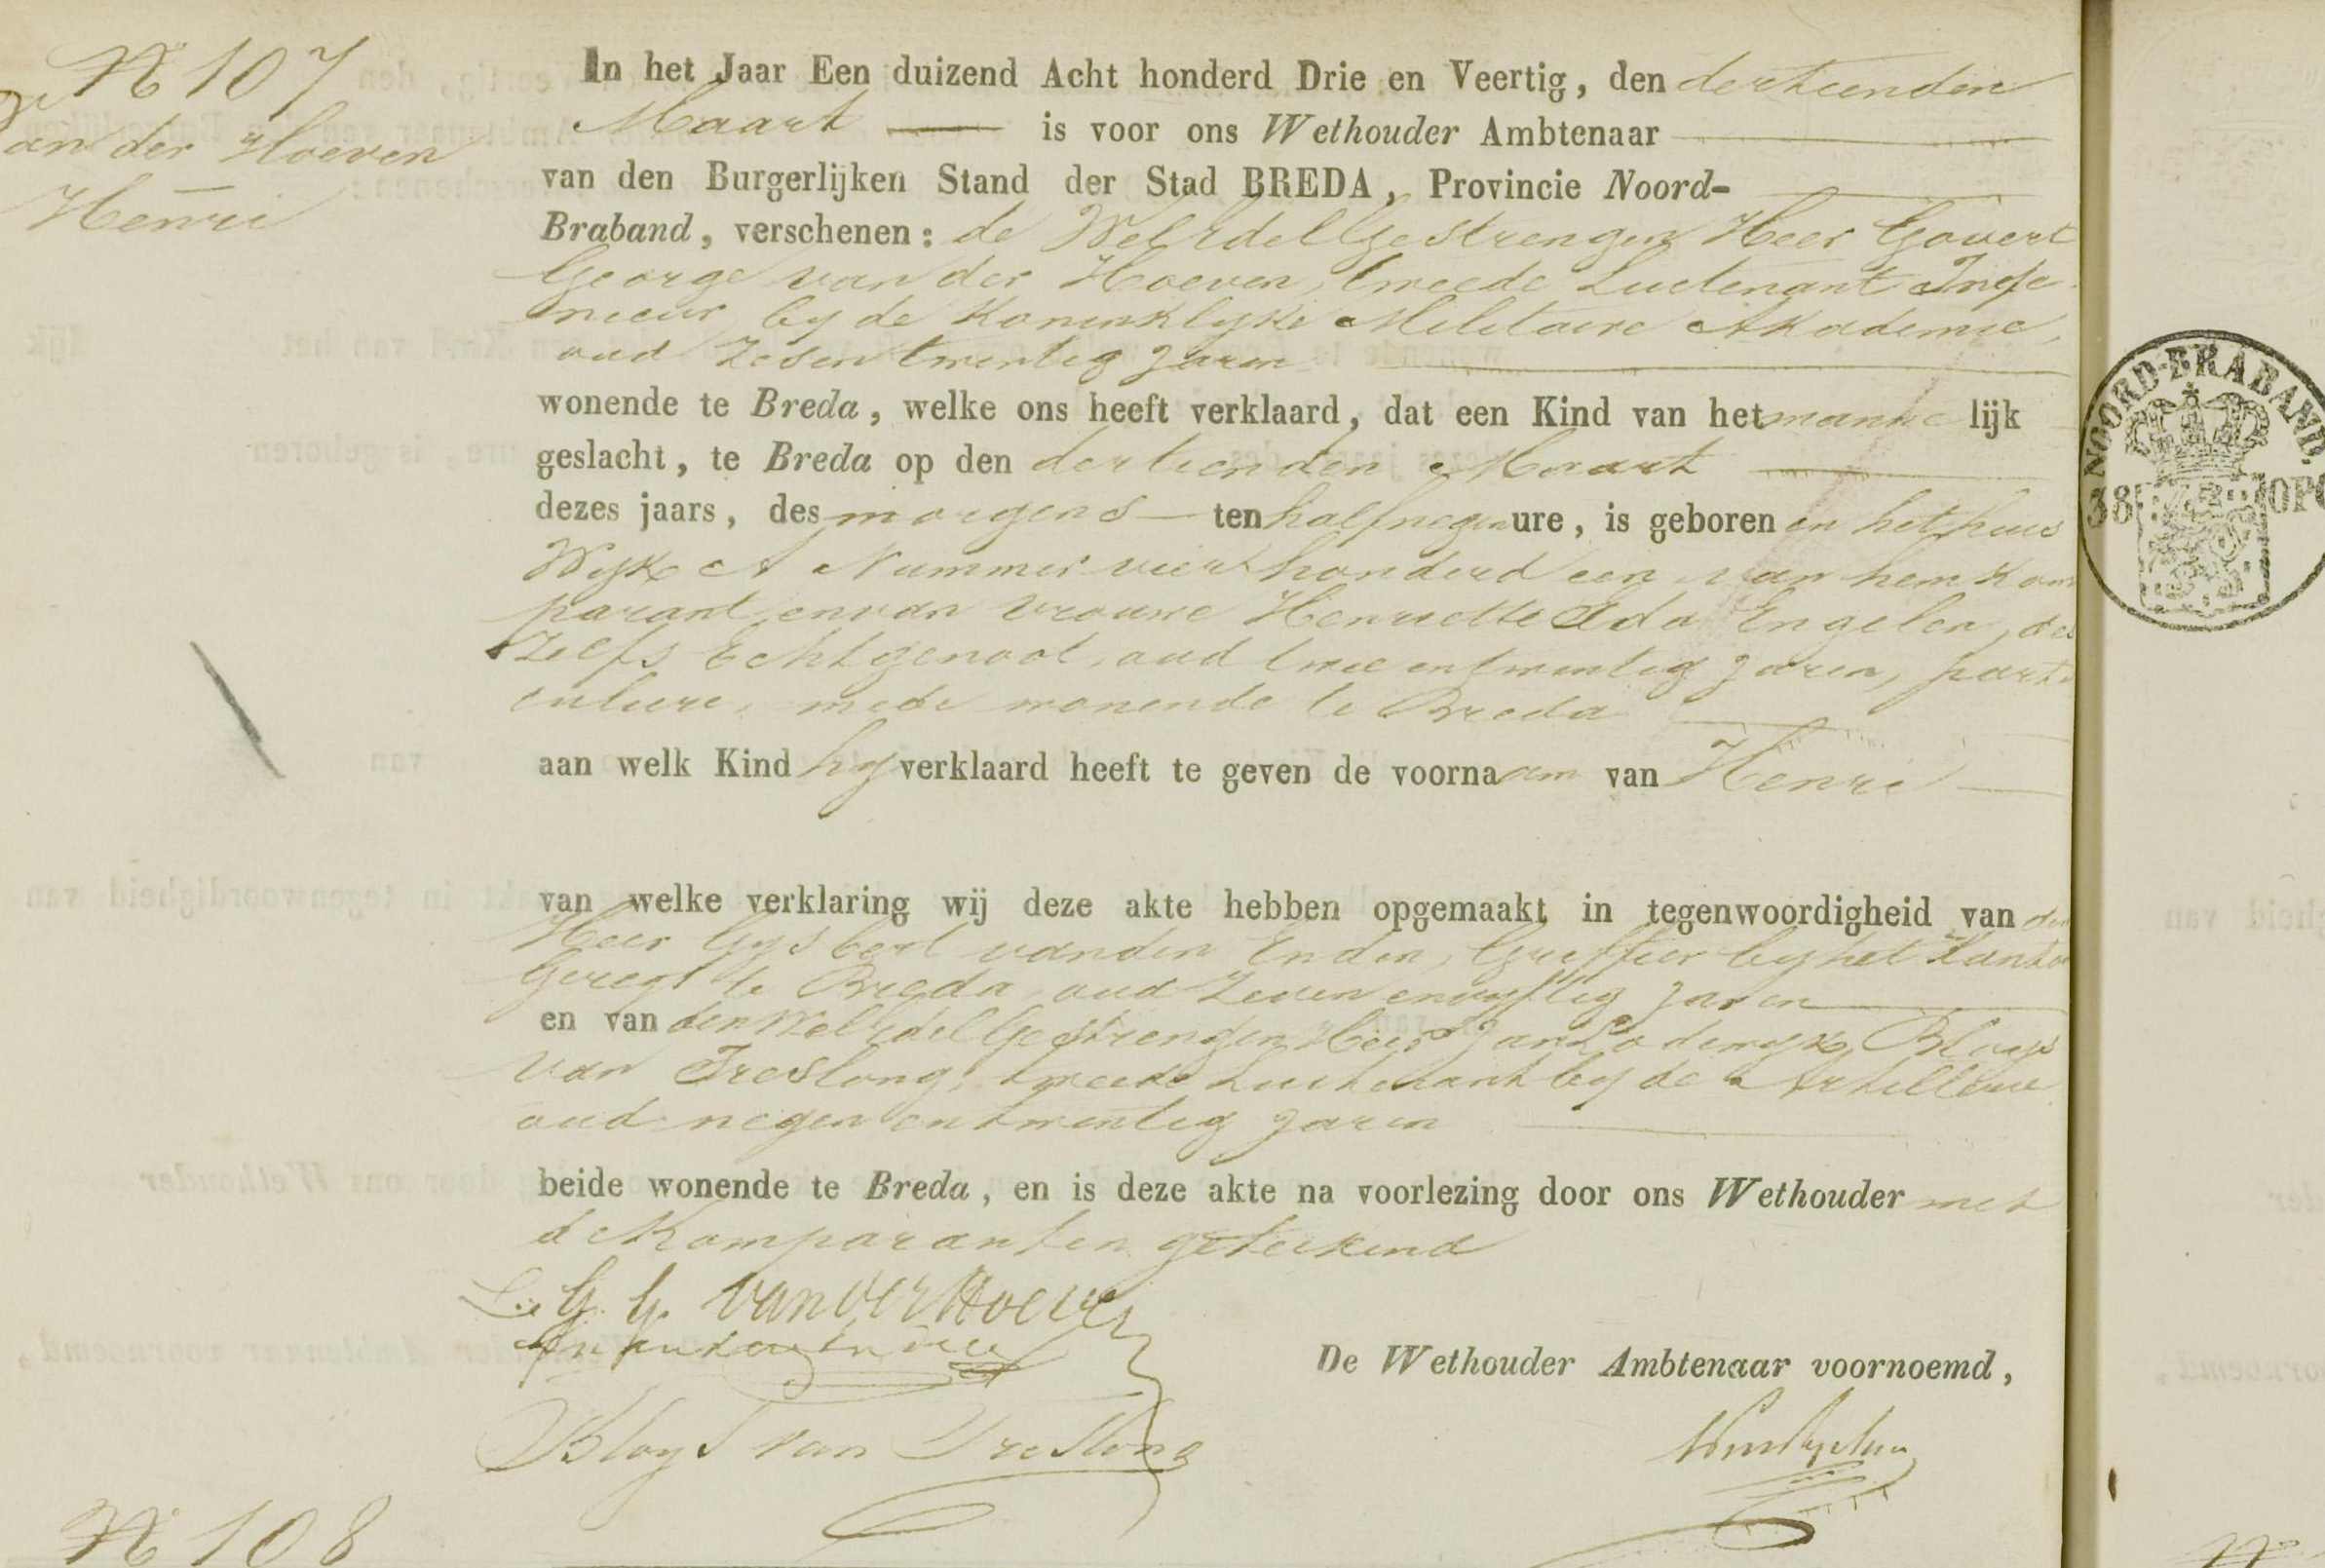 N 107
van der Hoeven
Henri
In het Jaar Een duizend Acht honderd Drie en Veertig, den dertienden
Maart is voor ons Wethouder Ambtenaar
van den Burgerlijken Stand der Stad BREDA, Provincie Noord-
Braband, verschenen: de WelEdelGestrengen Heer Govert
George van der Hoeven, tweede Luitenant Inge
nieur by de Koninklyke Militaire Akademie,
oud Zesentwintig Jaren
wonende te Breda, welke ons heeft verklaard, dat een Kind van het manne lijk
geslacht, te Breda op den dertienden Maart
dezes jaars, des morgens ten half negen ure, is geboren in het huis
Wyk A Nummer vierhonderd een van hem Kom
parant, en van vrouwe Henriette Ida Engelen, des
Zelfs Echtgenoot, oud twee en twintig Jaren, parti
culiere, mede wonende te Breda
aan welk Kind hy verklaard heeft te geven de voornaam van Henri
van welke verklaring wij deze akte hebben opgemaakt in tegenwoordigheid van den
Heer Gysbert van den Enden, Griffier by het Kanton
Geregt te Breda, oud Zeven en vyftig Jaren
en van den WelEdelGestrengen Heer Jan Lodewyk Bloys
van Treslong, tweede Luitenant by de Artillerie
oud negen en twintig Jaren
beide wonende te Breda, en is deze akte na voorlezing door ons Wethouder met
de Komparanten geteekend
G. G. van der Hoeven
Bloys van Treslong
De Wethouder Ambtenaar voornoemd,
N 108
NOORD-BRABAND
38 OP